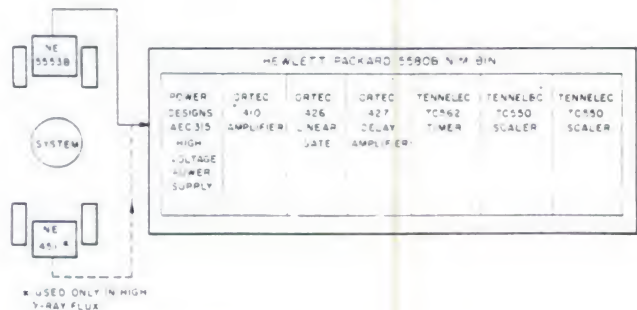 NE
5553B
SYSTEM
NE
451 *
* USED ONLY IN HIGH
γ-RAY FLUX
HEWLETT PACKARD 5580B NIM BIN
POWER
DESIGNS
AEC 315
HIGH
VOLTAGE
POWER
SUPPLY
ORTEC
410
AMPLIFIER
ORTEC
426
LINEAR
GATE
ORTEC
427
DELAY
AMPLIFIER
TENNELEC
TC562
TIMER
TENNELEC
TC550
SCALER
TENNELEC
TC550
SCALER